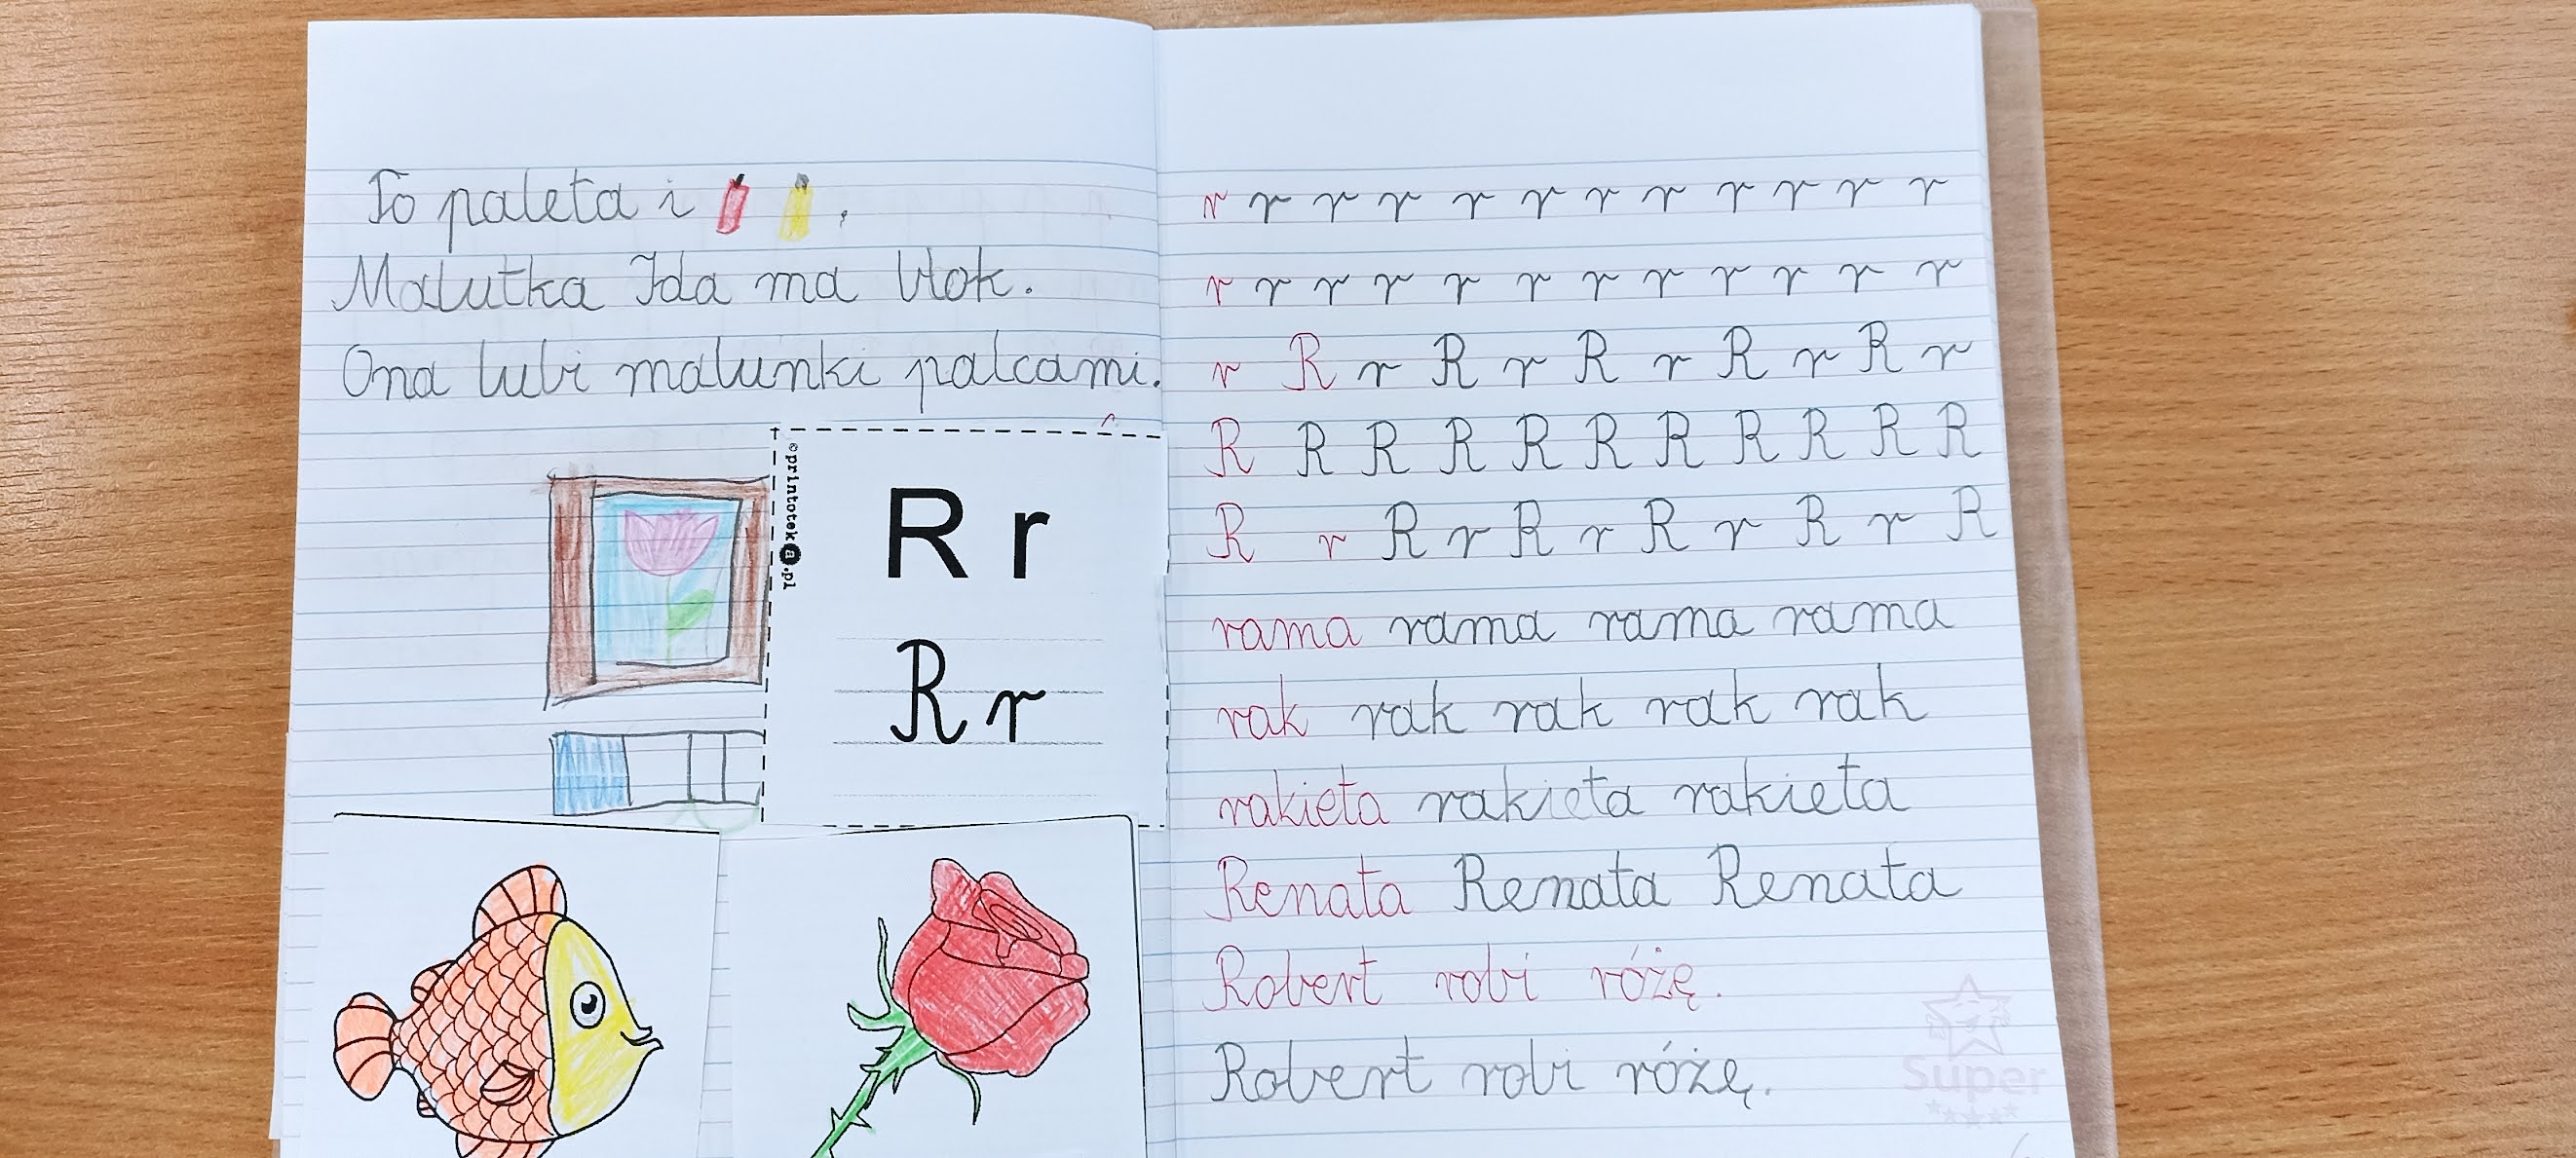 To paleta i .
Malutka Ida ma blok.
Ona lubi malunki palcami.
©printoteka.pl
R r
R r
r r r r r r r r r r r r
r r r r r r r r r r r r
r R r R r R r R r R r
R R R R R R R R R R R
R r R r R r R r R r R
rama rama rama rama
rak rak rak rak rak
rakieta rakieta rakieta
Renata Renata Renata
Robert robi różę.
Robert robi różę.
Super